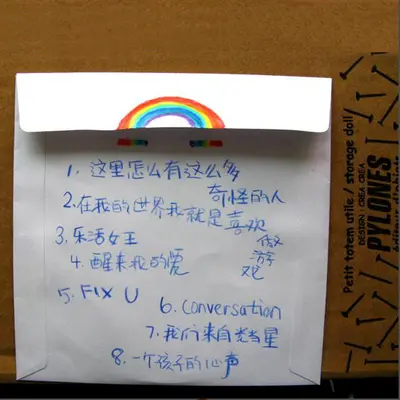 1. 这里怎么有这么多
奇怪的人
2.在我的世界我就是喜欢
做
游
戏
3.乐活女王
4.醒来我的
5. FIX U
6. Conversation
7.我们来自星
8.一个孩子的心声
Petit totem utile / storage doll /
DESIGN : CREA CREA
PYLONES